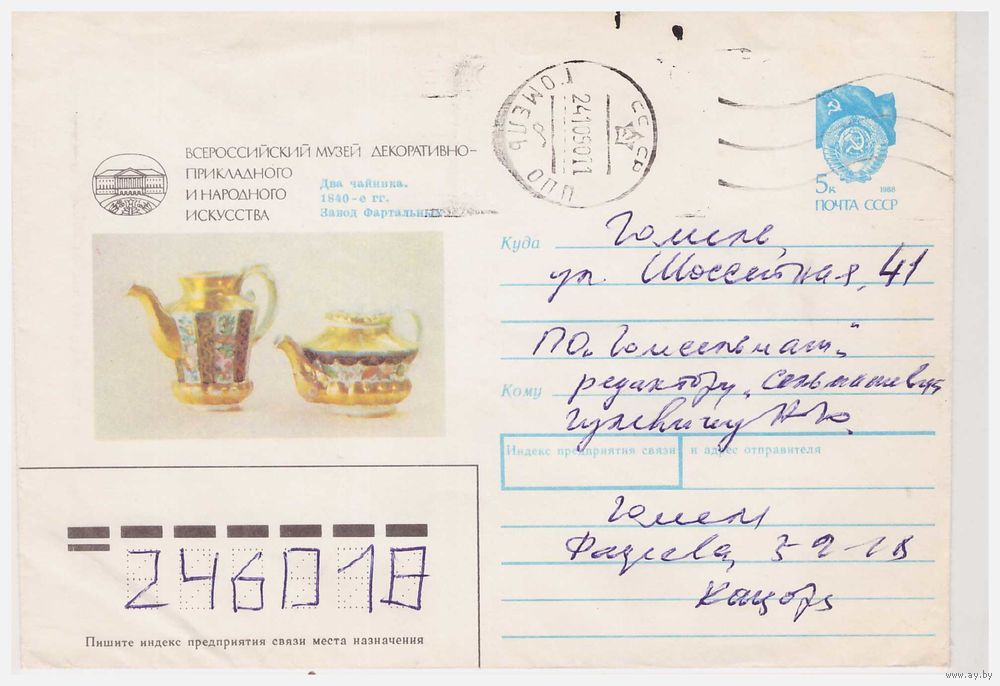 ВСЕРОССИЙСКИЙ МУЗЕЙ ДЕКОРАТИВНО-
ПРИКЛАДНОГО
И НАРОДНОГО
ИСКУССТВА
Два чайника.
1840-е гг.
Завод Фартальных
СССР
ГОМЕЛЬ
ПО
5к
1988
ПОЧТА СССР
Куда
Гомель,
ул. Шоссейная, 41
ПО "Гомсельмаш"
Кому
редактору "Сельмашевца"
Гулевичу
Индекс предприятия связи и адрес отправителя
Гомель
Фадеева,
246018
Пишите индекс предприятия связи места назначения
www.ay.by